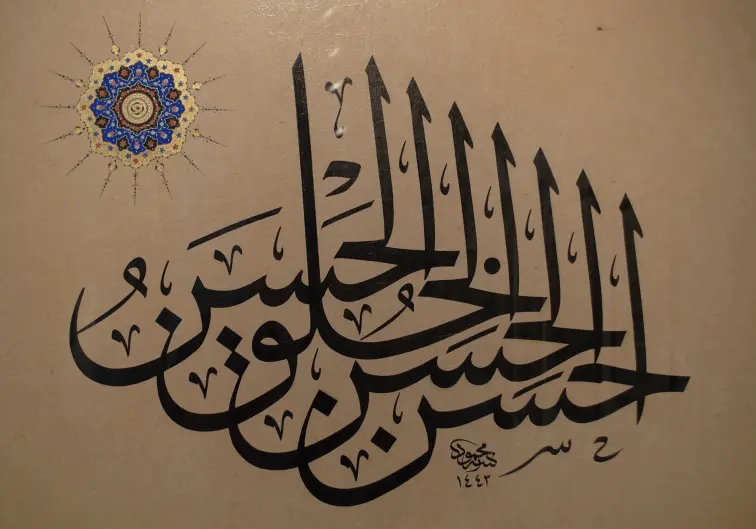 احسن الحسن الخلق الحسن
محمود
١٤٤٣